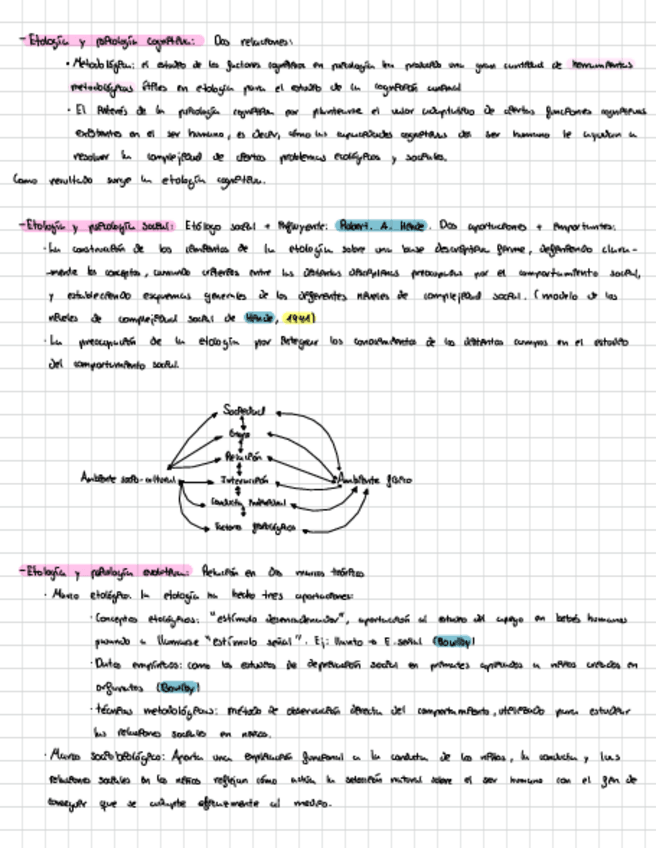 -Etología y psicología cognitiva: Dos relaciones:
• Metodológica: el estudio de los factores cognitivos en psicología ha producido una gran cantidad de herramientas
metodológicas útiles en etología para el estudio de la cognición animal
• El interés de la psicología cognitiva por plantearse el valor adaptativo de ciertas funciones cognitivas
existentes en el ser humano, es decir, cómo las capacidades cognitivas del ser humano le ayudan a
resolver la complejidad de ciertos problemas ecológicos y sociales.
Como resultado surge la etología cognitiva.
-Etología y psicología social: Etólogo social + influyente: Robert. A. Hinde. Dos aportaciones + importantes:
·La construcción de los cimientos de la etología sobre una base descriptiva firme, definiendo clara-
-mente los conceptos, aunando criterios entre las distintas disciplinas preocupadas por el comportamiento social,
y estableciendo esquemas generales de los diferentes niveles de complejidad social. (modelo de los
niveles de complejidad social de Hinde,
· La preocupación de la etología por integrar los conocimientos de los distintos campos en el estudio
del comportamiento social.
Sociedad
Grupo
Relación
Ambiente socio-cultural
Interacción
Ambiente físico
Conducta individual
Factores
-Etología y psicología evolutiva: Relación en dos marcos teóricos
· Marco etológico. La etología ha hecho tres aportaciones:
·Conceptos etológicos: "estímulo desencadenador", aportación al estudio del apego en bebés humanos
pasando a llamarse "estímulo señal". Ej: llanto → E.señal (Bowlby)
·Datos empíricos: como los estudios de deprivación social en primates aplicados a niños criados en
orfanatos (Bowlby)
·técnicas metodológicas: método de observación directa del comportamiento, utilizado para estudiar
las relaciones sociales en niños.
· Marco sociobiológico: Aporta una explicación funcional a la conducta de los niños, la conducta y las
relaciones sociales en los niños reflejan cómo actúa la selección natural sobre el ser humano con el fin de
conseguir que se adapte eficazmente al medio.